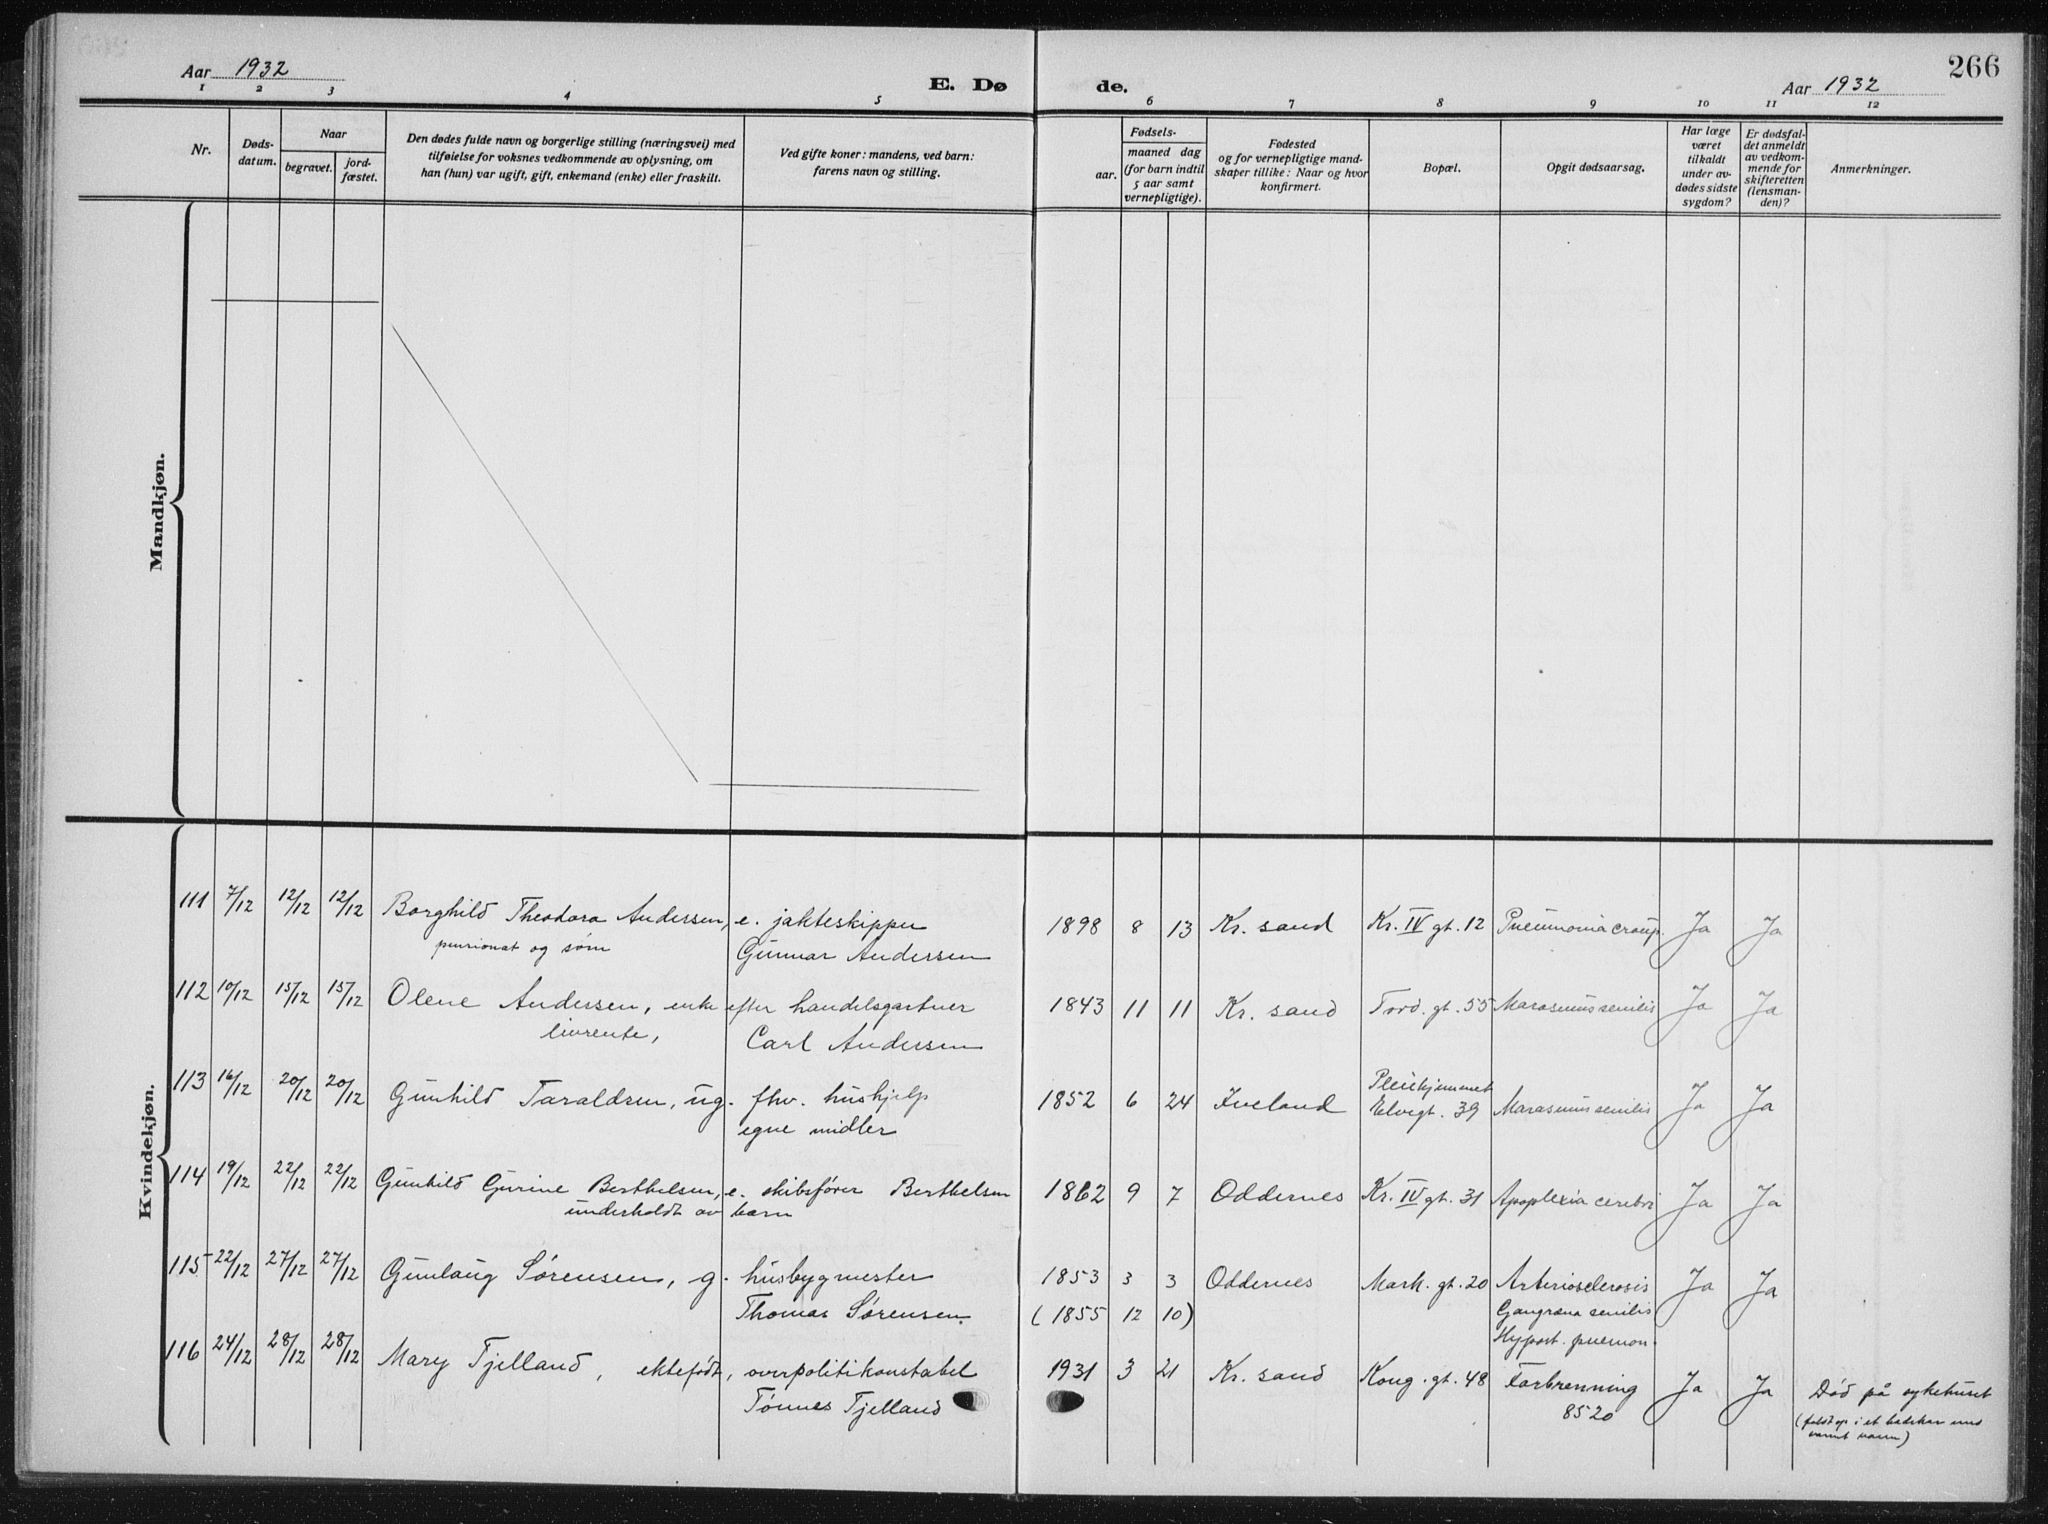 266
Aar 1932
E. Dø
de.
Aar 1932
1 2 3 4 5 6 7 8 9 10 11 12
Nr.
Døds-
datum.
Naar
begravet.
jord-
fæstet.
Den dødes fulde navn og borgerlige stilling (næringsvei) med
tilføielse for voksnes vedkommende av oplysning, om
han (hun) var ugift, gift, enkemand (enke) eller fraskilt.
Ved gifte koner: mandens, ved barn:
farens navn og stilling.
Fødsels-
aar.
maaned dag
(for barn indtil
5 aar samt
vernepligtige).
Fødested
og for vernepligtige mand-
skaper tillike: Naar og hvor
konfirmert.
Bopæl.
Opgit dødsaarsag.
Har læge
været
tilkaldt
under av-
dødes sidste
sygdom?
Er dødsfal-
det anmeldt
av vedkom-
mende for
skifteretten
(lensman-
den)?
Anmerkninger.
Mandkjøn.
Kvindekjøn.
111 7/12 12/12 12/12 Borghild Theodora Andersen, e. jakteskipper 1898 8 13 Kr. sand Kr. IV gt. 12 Pneumonia croup. Ja Ja
pensionat og søm Gunnar Andersen
112 10/12 15/12 15/12 Olene Andersen, enke efter handelsgartner 1843 11 11 Kr. sand Tord. gt. 55 Marasmus senilis Ja Ja
livrente, Carl Andersen
113 16/12 20/12 20/12 Gunhild Taraldsen, ug. fhv. hushjelp 1852 6 24 Iveland Pleiehjemmet Marasmus senilis Ja Ja
egne midler Elvegt. 39
114 19/12 22/12 22/12 Gunhild Gurine Berthelsen, e. skibsfører Berthelsen 1862 9 7 Oddernes Kr. IV gt. 31 Apoplexia cerebri Ja Ja
underholdt av barn
115 22/12 27/12 27/12 Gunlaug Sørensen, g. husbygmester 1853 3 3 Oddernes Mark. gt. 20 Arteriosclerosis Ja Ja
Thomas Sørensen. (1855 12 10) Gangræna senilis
Hypost. pneumon.
116 24/12 28/12 28/12 Mary Tjelland, ektefødt, overpolitikonstabel 1931 3 21 Kr. sand Kong. gt. 48 Forbrenning Ja Ja Død på sykehuset
Tønnes Tjelland 8520 (faldt op i et badekar med
varmt vann)